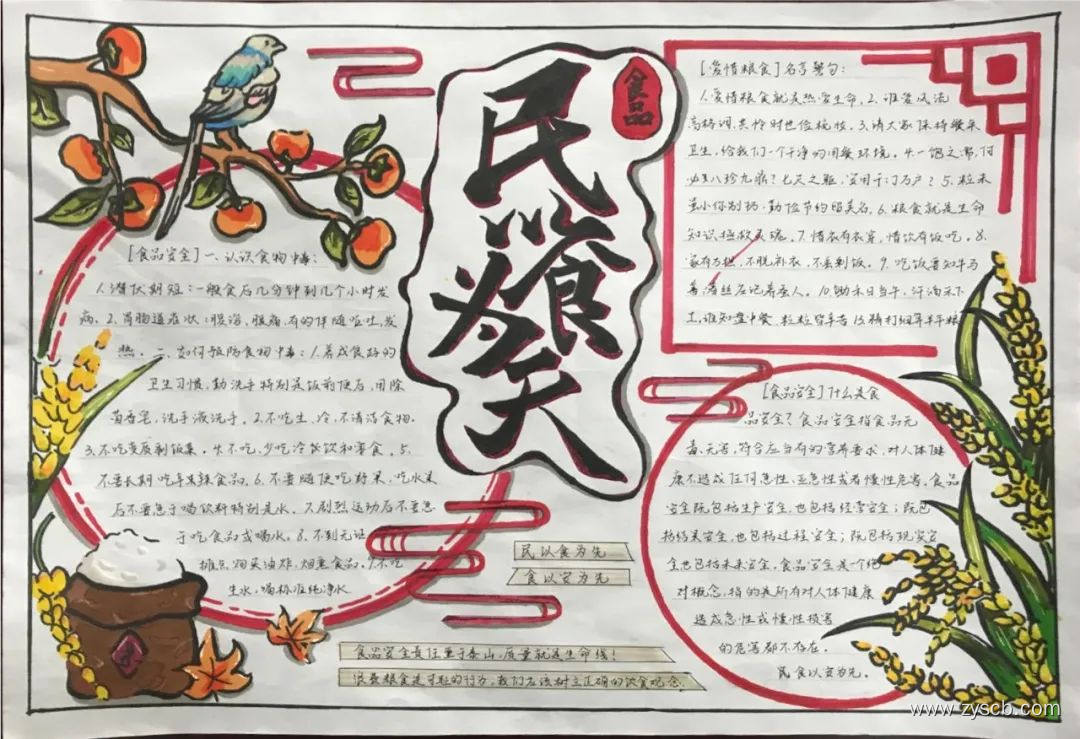 民以食为天
食品
[食品安全] 一、认识食物中毒:
1.潜伏期短:一般食后几分钟到几个小时发
病。2.胃肠道症状:腹泻、腹痛,有的伴随呕吐,发
热。二、如何预防食物中毒:1.养成良好的
卫生习惯,勤洗手特别是饭前便后,用除
菌香皂,洗手液洗手。2.不吃生、冷、不清洁食物.
3.不吃变质剩饭菜。4.不吃,少吃冷饮和零食。5.
不要长期吃辛辣食品。6.不要随便吃野果,吃水果
后不要急于喝饮料特别是水。7.剧烈运动后不要急
于吃食品或喝水。8.不到无证
摊点购买油炸、烟熏食品。9.不吃
生水,喝标准纯净水
[爱惜粮食]名言警句:
1.爱惜粮食就是热爱生命。2.谁爱风流
高格调,共怜时世俭梳妆。3.请大家保持餐桌
卫生,给我们一个干净的用餐环境。4.一饱之需,何
必八珍九鼎?七尺之躯,安用千门万户?5.粒米
虽小你别扔,勤俭节约留美名。6.粮食就是生命
知识拯救灵魂。7.惜衣有衣穿,惜饮有饭吃。8.
家有万担,不脱补衣,不丢剩饭。9.吃饭要知牛马
善,着丝应记养蚕人。10.锄禾日当午,汗滴禾下
土,谁知盘中餐,粒粒皆辛苦
[食品安全]什么是食
品安全?食品安全指食品无
毒、无害,符合应当有的营养要求,对人体健
康不造成任何急性、亚急性或者慢性危害。食品
安全既包括生产安全,也包括经营安全;既包
括结果安全,也包括过程安全;既包括现实安
全也包括未来安全。食品安全是个绝
对概念,指的是所有对人体健康
造成急性或慢性损害
的危害都不存在。
民食以安为先。
民以食为先
食以安为先
食品安全责任重于泰山,质量就是生命线!
浪费粮食是可耻的行为,我们应该树立正确的饮食观念。
www.zyscb.com